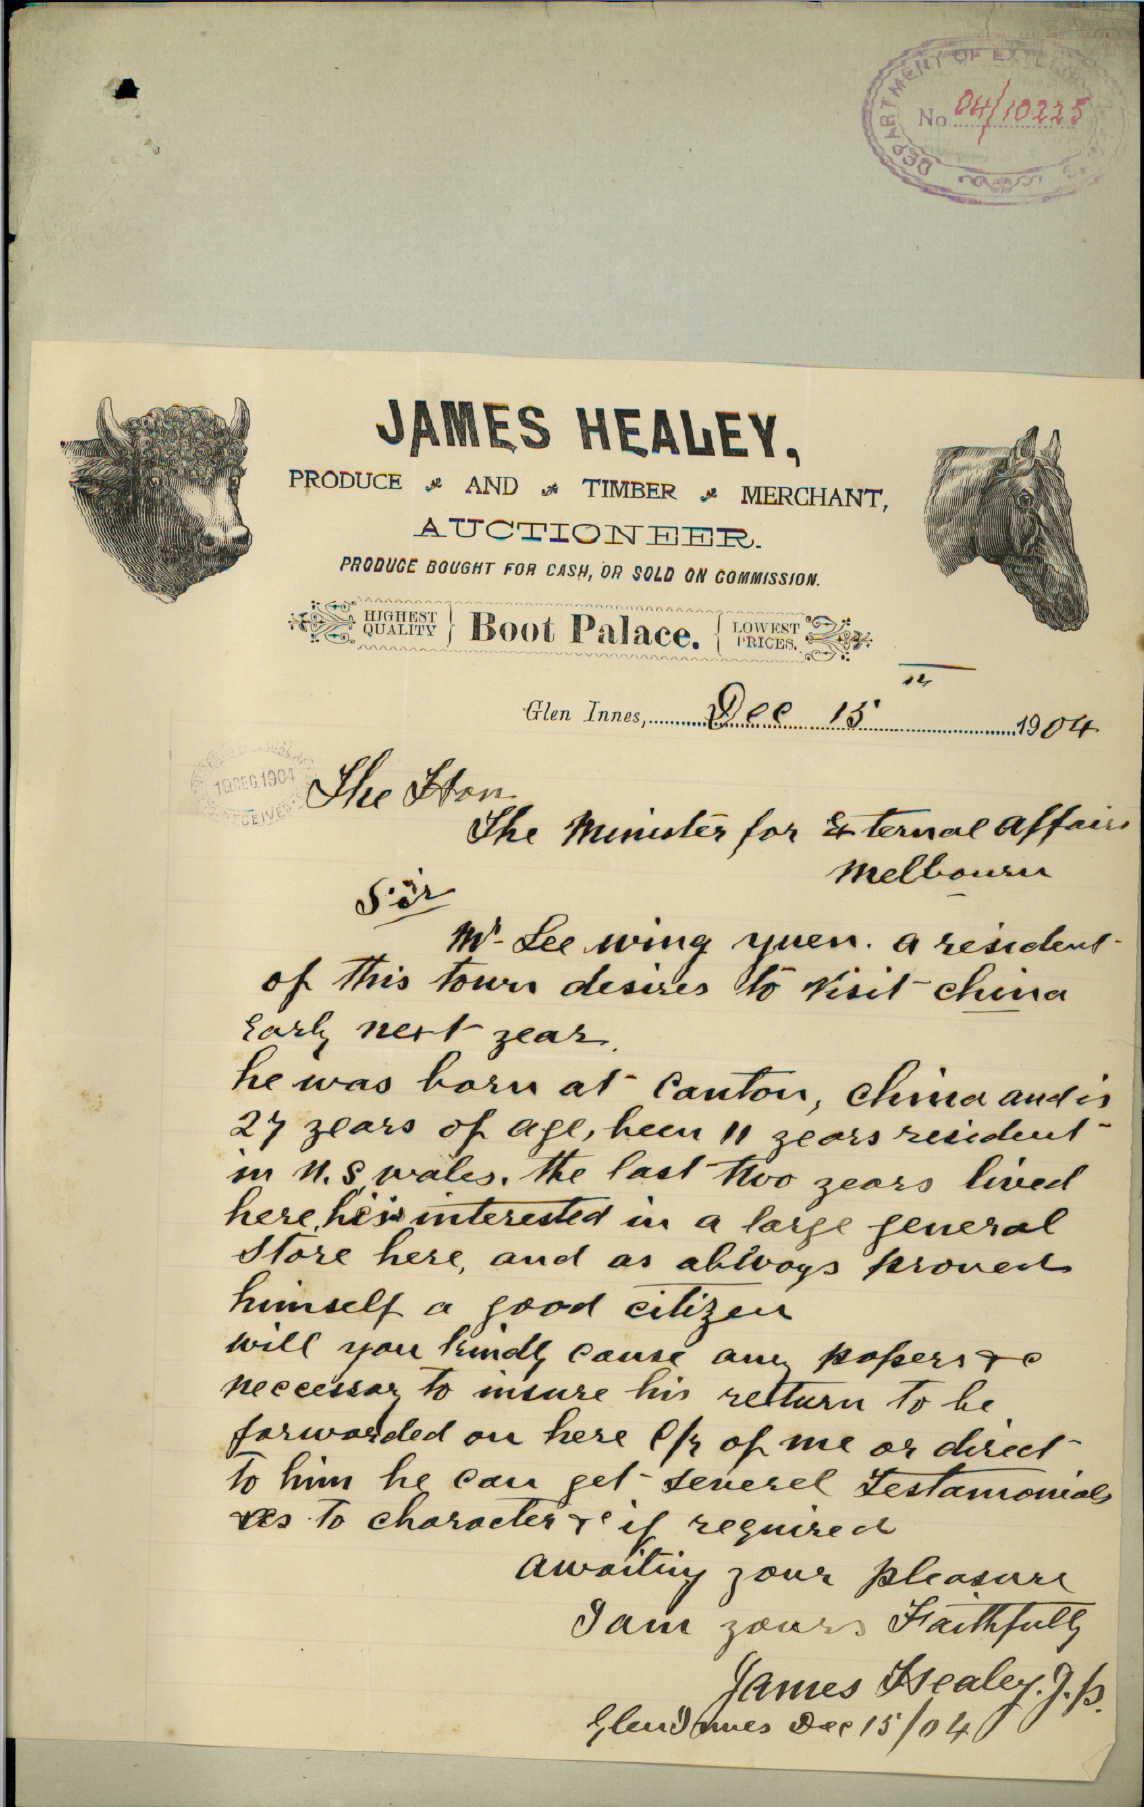 DEPARTMENT OF EXTERNAL
No 04/10225
JAMES HEALEY,
PRODUCE AND TIMBER MERCHANT,
AUCTIONEER.
PRODUCE BOUGHT FOR CASH, OR SOLD ON COMMISSION.
HIGHEST QUALITY Boot Palace. LOWEST PRICES.
Glen Innes, Dec 15th 1904
19 DEC 1904
RECEIVED
The Hon
The Minister for External Affairs
Melbourn
Sir
Mr Lee wing yuen. a resident
of this town desires to visit china
Early next year.
he was born at Canton, china and is
27 years of age, been 11 years resident
in N.S. wales. the last two years lived
here, he is interested in a large general
store here, and as always proved
himself a good citizen
will you kindly cause any papers &c
neccessary to insure his retturn to be
forwarded on here C/r of me or direct
to him he can get severel Testamonials
as to character &c if required
awaiting your pleasure
I am yours Faithfully
James Healey. J.P.
Glen Innes Dec 15/04